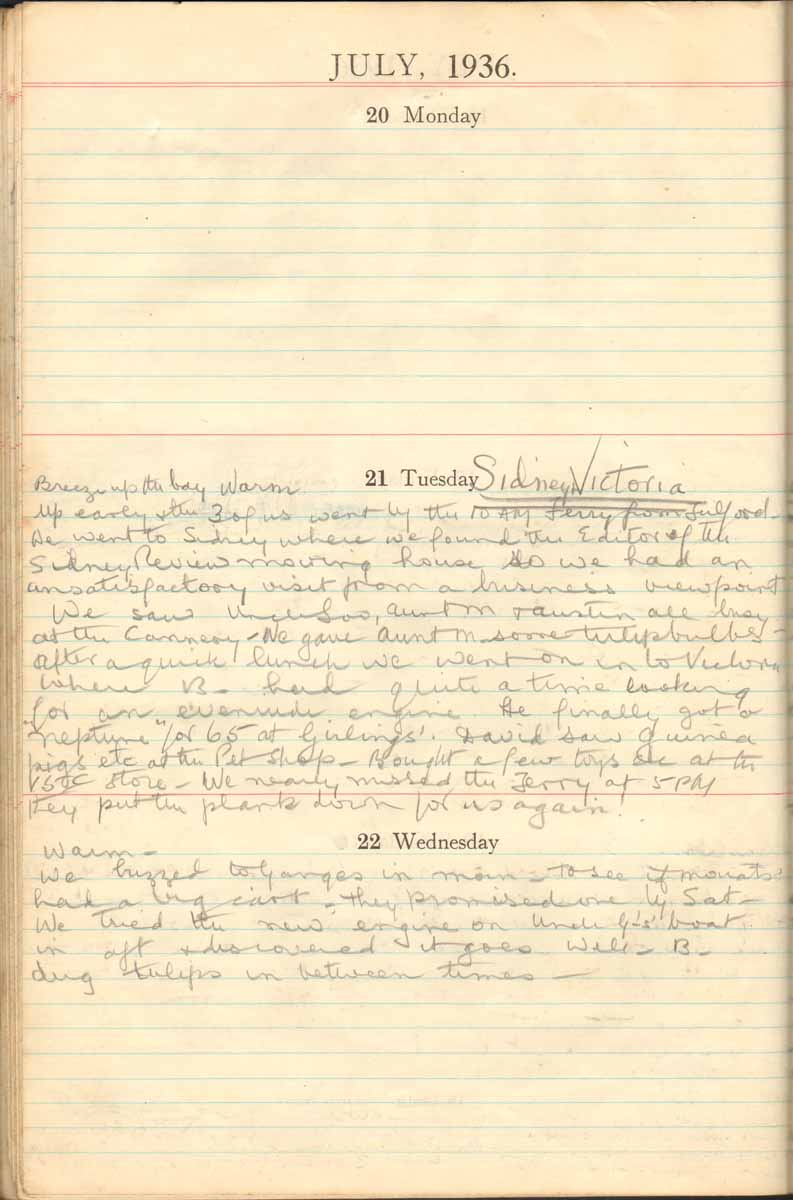 JULY, 1936.
20 Monday
21 Tuesday Sidney Victoria
Breeze up the bay Warm
Up early & the 3 of us went by the 10 AM Ferry from Fulford.
We went to Sidney where we found the Editor of the
Sidney Review moving house so we had an
unsatisfactory visit from a business viewpoint
We saw Uncle Aunt M & Austin all busy
at the Cannery - We gave Aunt M. some tulip bulbs -
After a quick lunch we went on in to Victoria
where B - had quite a time looking
for an evenrude engine. He finally got a
"Neptune" for 65 at Girlings'. David saw Guinea
pigs etc at the Pet Shop - Bought a few toys etc at the
store - We nearly missed the Ferry at 5 PM
they put the plank down for us again.
22 Wednesday
Warm -
We buzzed to Ganges in morn - to see if Mouats'
had a big cart - they promised one by Sat -
We tried the new engine on Uncle G's' boat
in aft & discovered it goes well - B -
dug tulips in between times -